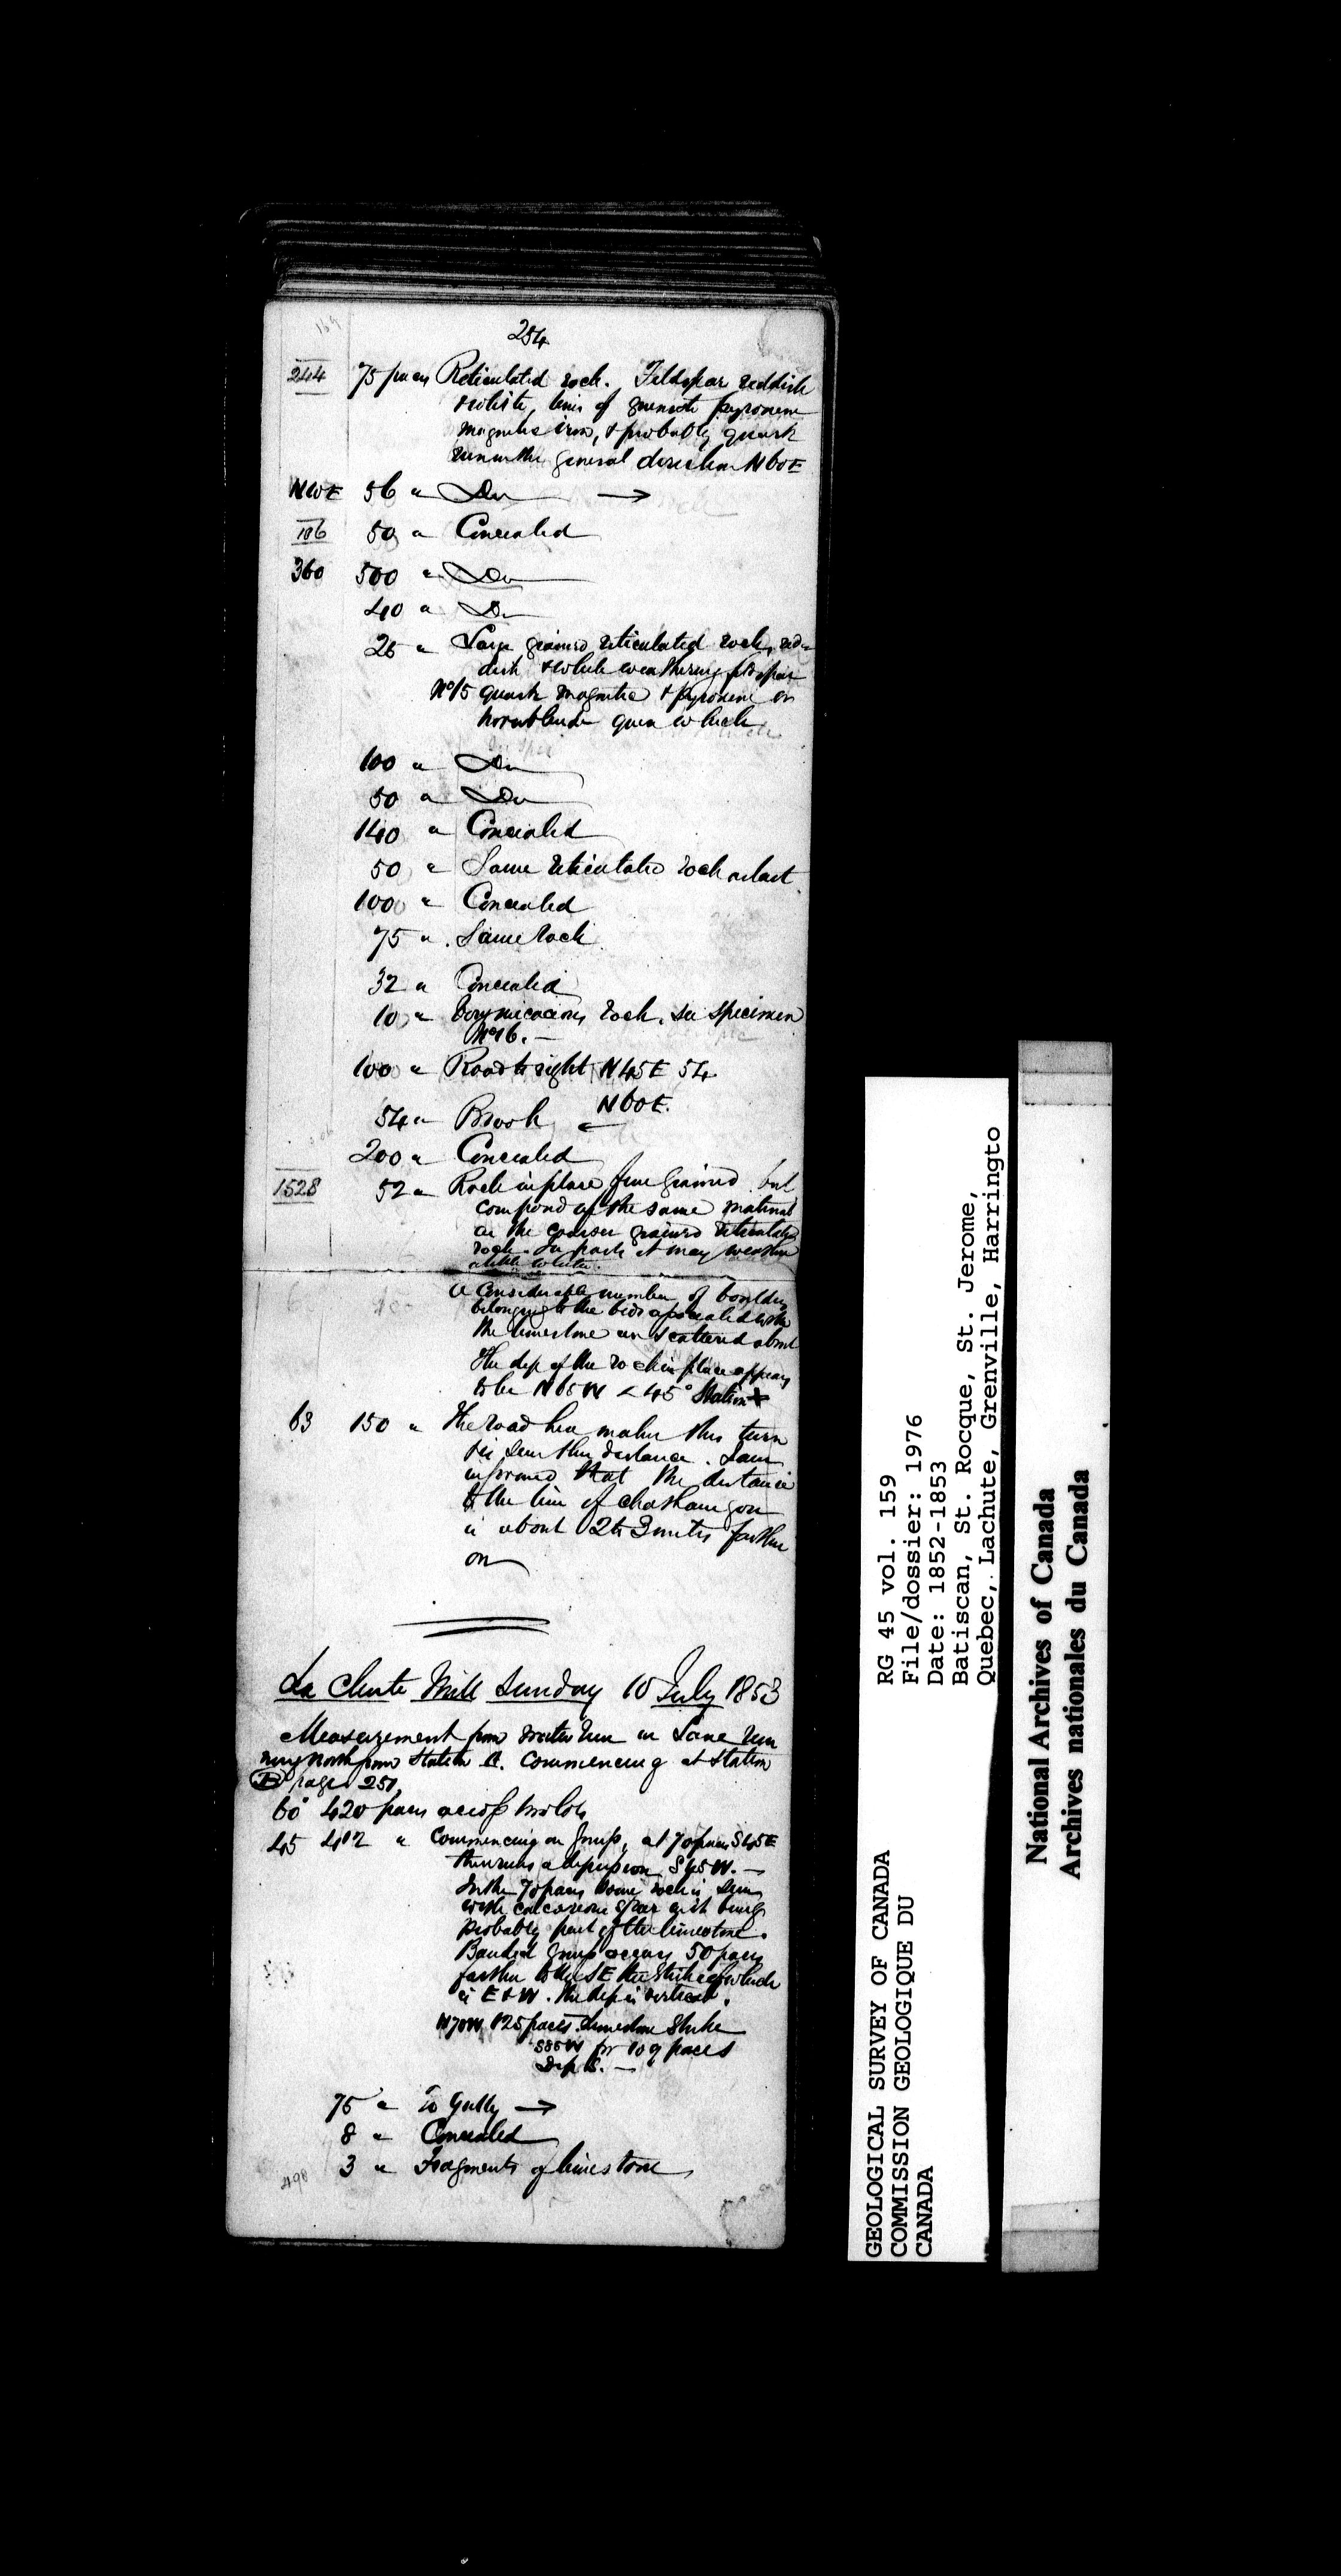 254
244 75 paces Reticulated rock. Feldspar reddish
& white, lines of greenish pyroxene
magnetic iron, & probably quartz
run in the general direction N60E
N60E 56 " Do →
106 50 " Concealed
360 500 " Do
40 " Do
25 " Large grained reticulated rock, red-
dish & white weathering feldspar
No 15 quartz magnetic & pyroxene or
hornblende
100 " Do
50 " Do
140 " Concealed
50 " Same reticulated rock as last
100 " Concealed
75 " Same rock
32 " Concealed
10 " Very micaceous rock. See specimen
No 16. —
100 " Road to right N45E 54
N60E.
54 " Brook ←
200 " Concealed
1528 52 " Rock in place fine grained but
composed of the same material
as the coarser grained reticulated
rock. In parts it may weather
a little whiter.
A considerable number of boulders
belonging to the beds associated with
the limestone are scattered about
The dip of the rock in place appears
to be N65W < 45° Station +
63 150 " The road here makes this turn
for the distance. I am
informed that the distance
to the line of Chatham gore
is about 2 to 3 miles farther
on
La Chute Mill Sunday 10 July 1853
Measurement from in Lane run
ning north from Station A. Commencing at Station
page 251.
60° 420 paces across two lots
45 402 " Commencing on gneiss, at 70 paces S45E
there runs a depression S45W. —
In the 70 paces some rock is seen
with calcareous spar it being
probably part of the limestone.
Banded gneiss occurs 50 paces
farther to the SE the strike of which
is E & W. The dip is vertical.
N70W 125 paces. Limestone Strike
S85W for 109 paces
Dip
75 " To Gully →
8 " Concealed
3 " Fragments of limestone
490
RG 45 vol. 159
File/dossier: 1976
Date: 1852-1853
Batiscan, St. Rocque, St. Jerome,
Quebec, Lachute, Grenville, Harringto
GEOLOGICAL SURVEY OF CANADA
COMMISSION GEOLOGIQUE DU
CANADA
National Archives of Canada
Archives nationales du Canada